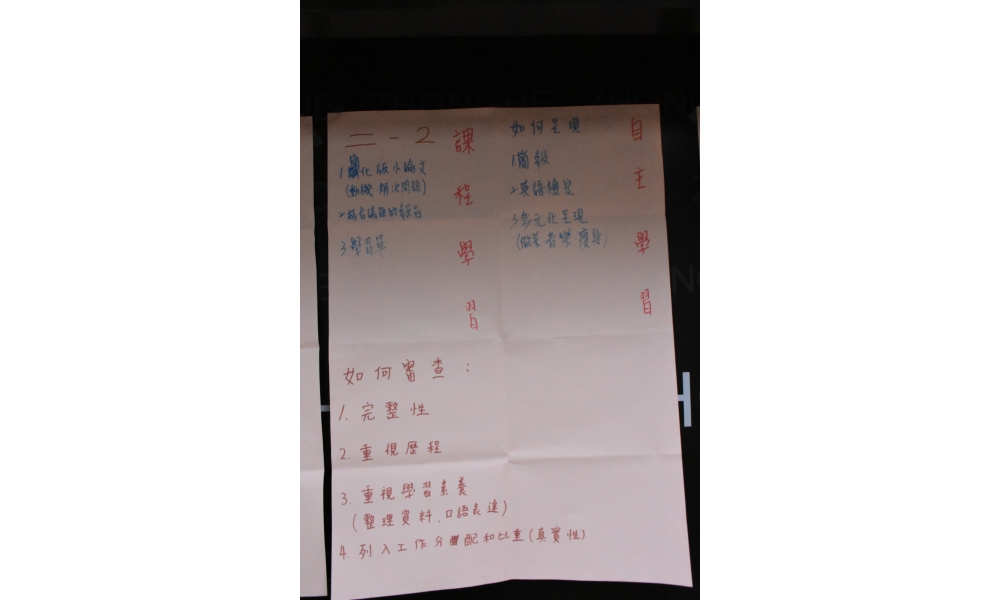 二-2
課程學習
1.簡化版小論文
(動機 解決問題)
3.學習單
自主學習
如何呈現
1.簡報
2.英語檢定
3.多元化呈現
如何審查：
1. 完整性
2. 重視歷程
3. 重視學習素養
(整理資料、口語表達)
4. 列入工作分配和比重(真實性)